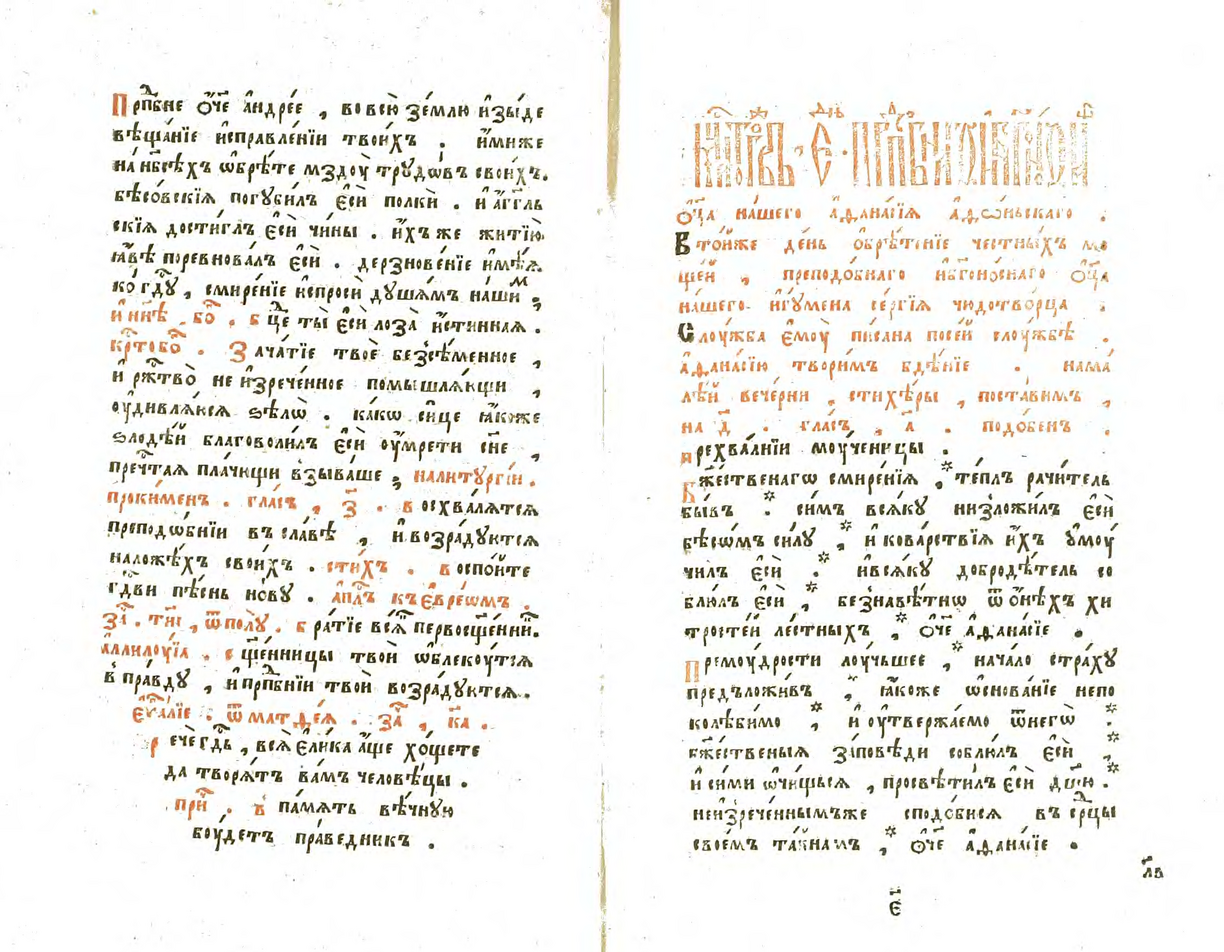 Прп҃бне ѻ҆́ч҃е а҆ндре́е , во всю̀ зе́млю и҆зы́де
вѣща́нїе и҆справле́нїи твои́хъ . и҆́миже
на нб҃сѣ́хъ ѡ҆брѣ́те мздоу̀ трꙋдѡ́въ свои́хъ.
бѣсо́вскїѧ погꙋби́лъ є҆сѝ полкѝ . и҆ а҆́гг҃ль
скїѧ дости́глъ є҆сѝ чи́ны . и҆́хъ же житїю̀
ꙗ҆́вѣ поревнова́лъ є҆сѝ . дерзнове́ніе и҆мѣ́ѧ
ко гдⷭ҇ꙋ , смире́нїе и҆спросѝ дꙋша́мъ на́шиⷨ ,
и҆ нн҃ѣ . бо҃ . бц҃е ты̀ є҆сѝ лоза̀ и҆́стинная .
крⷭ҇тобо҃ . Зача́тїе твоѐ безсѣ́менное ,
и҆ ржⷭ҇тво̀ не и҆зрече́нное помышлѧ́ющи ,
оу҆дивлѧ́юсѧ ѕѣлѡ̀ . ка́кѡ си́це ꙗ҆́коже
ѕлодѣ́й благоволи́лъ є҆сѝ оу҆мре́ти сн҃е ,
пречⷭ҇таѧ пла́чющи взыва́ше , на литꙋргі́и .
проки́менъ . гла́съ , з҃ . восхва́лѧтсѧ
преподо́бнїи въ сла́вѣ , и҆ возра́дꙋютсѧ
на ло́жѣхъ свои́хъ . сти́хъ . воспо́йте
гдⷭ҇ви пѣ́снь но́вꙋ . а҆пⷭ҇лъ къ є҆вре́ѡмъ .
за҃ . тн҃і , ѿ полꙋ̀ . бра́тїе всѧ́къ первосщ҃е́нникъ.
аллилоу́їа . сщ҃е́нницы твоѝ ѡ҆блекоу́тсѧ
в пра́вдꙋ , и҆ прпⷣбнїи твоѝ возра́дꙋютсѧ .
є҆ѵⷢ҇лїе . ѿ матѳе́ѧ . за҃ , к҃а .
рече́ гдⷭ҇ь , всѧ̀ є҆ли́ка а҆́ще хо́щете
да творѧ́тъ ва́мъ человѣ́цы .
при́ . в па́мѧть вѣ́чнꙋю
боу́детъ пра́ведникъ .
ѻ҆ц҃а̀ на́шего а҆ѳана́сїѧ а҆ѳѡ́ньскаго .
В то́йже де́нь ѻ҆брѣ́тенїе че́стныхъ мо
ще́й , преподо́бнаго и҆ бг҃оно́снаго ѻ҆ц҃а̀
на́шего и҆гꙋ́мена се́ргїѧ чюдотво́рца .
Слоу́жба є҆моу̀ пи́сана по се́й слоу́жбѣ .
а҆ѳана́сїю твори́мъ бдѣ́нїе . на ма́
лѣй вече́рни , стихѣ́ры , поста́вимъ ,
на д҃ . гла́съ , а҃ . подо́бенъ .
прехва́лнїи моу́ченицы .
Бж҃е́ственагѡ смире́нїѧ , те́плъ рачи́тель
бы́въ . си́мъ всѧ́кꙋ низложи́лъ є҆сѝ
бѣсѡ́мъ си́лꙋ , и҆ кова́рствїѧ и҆́хъ ѹ҆моу́
чилъ є҆сѝ . и҆ всѧ́кꙋ добродѣ́тель со
блю́лъ є҆сѝ , безнавѣ́тнѡ ѿ ѻ҆́нѣхъ хи
тросте́й ле́стныхъ , ѻ҆́ч҃е а҆ѳана́сїе .
Премоу́дрости лоу́чьшее , нача́ло стра́хꙋ
предъложи́въ , ꙗ҆́коже ѡ҆снова́нїе непо
колѣ́бимо , и҆ оу҆твержа́емо ѿ него̀ .
бж҃е́ственыѧ за́повѣди соблю́лъ є҆сѝ
и҆ си́ми ѡ҆чи́щьсѧ , просвѣти́лъ є҆сѝ дш҃ю .
неи҆зрече́ннымъже сподо́бисѧ въ срⷣцы
свое́мъ та́йнамъ , ѻ҆́ч҃е а҆ѳана́сїе .
є҃